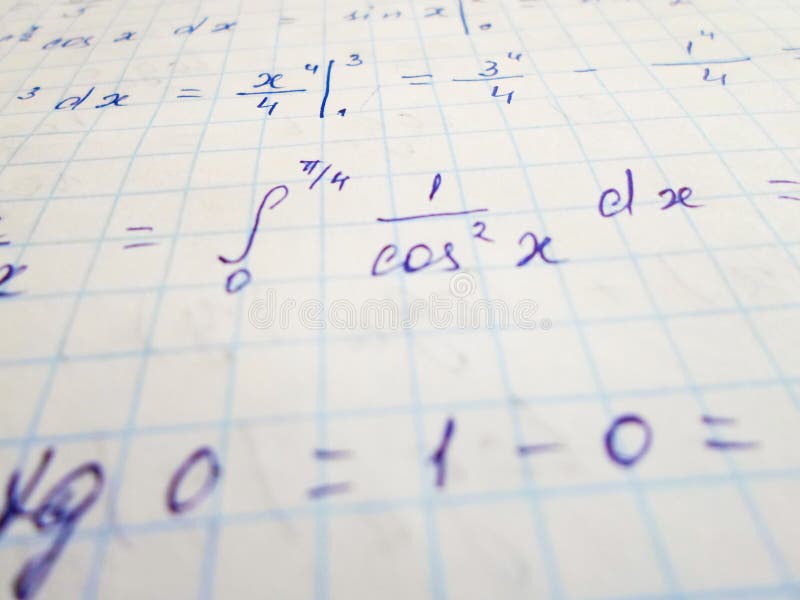 cos x dx = sin x|
³ dx = x⁴/4 |₁³ = 3⁴/4 - 1⁴/4
= ∫₀^π/4 1/cos² x dx =
tg 0 = 1 - 0 =
dreamstime